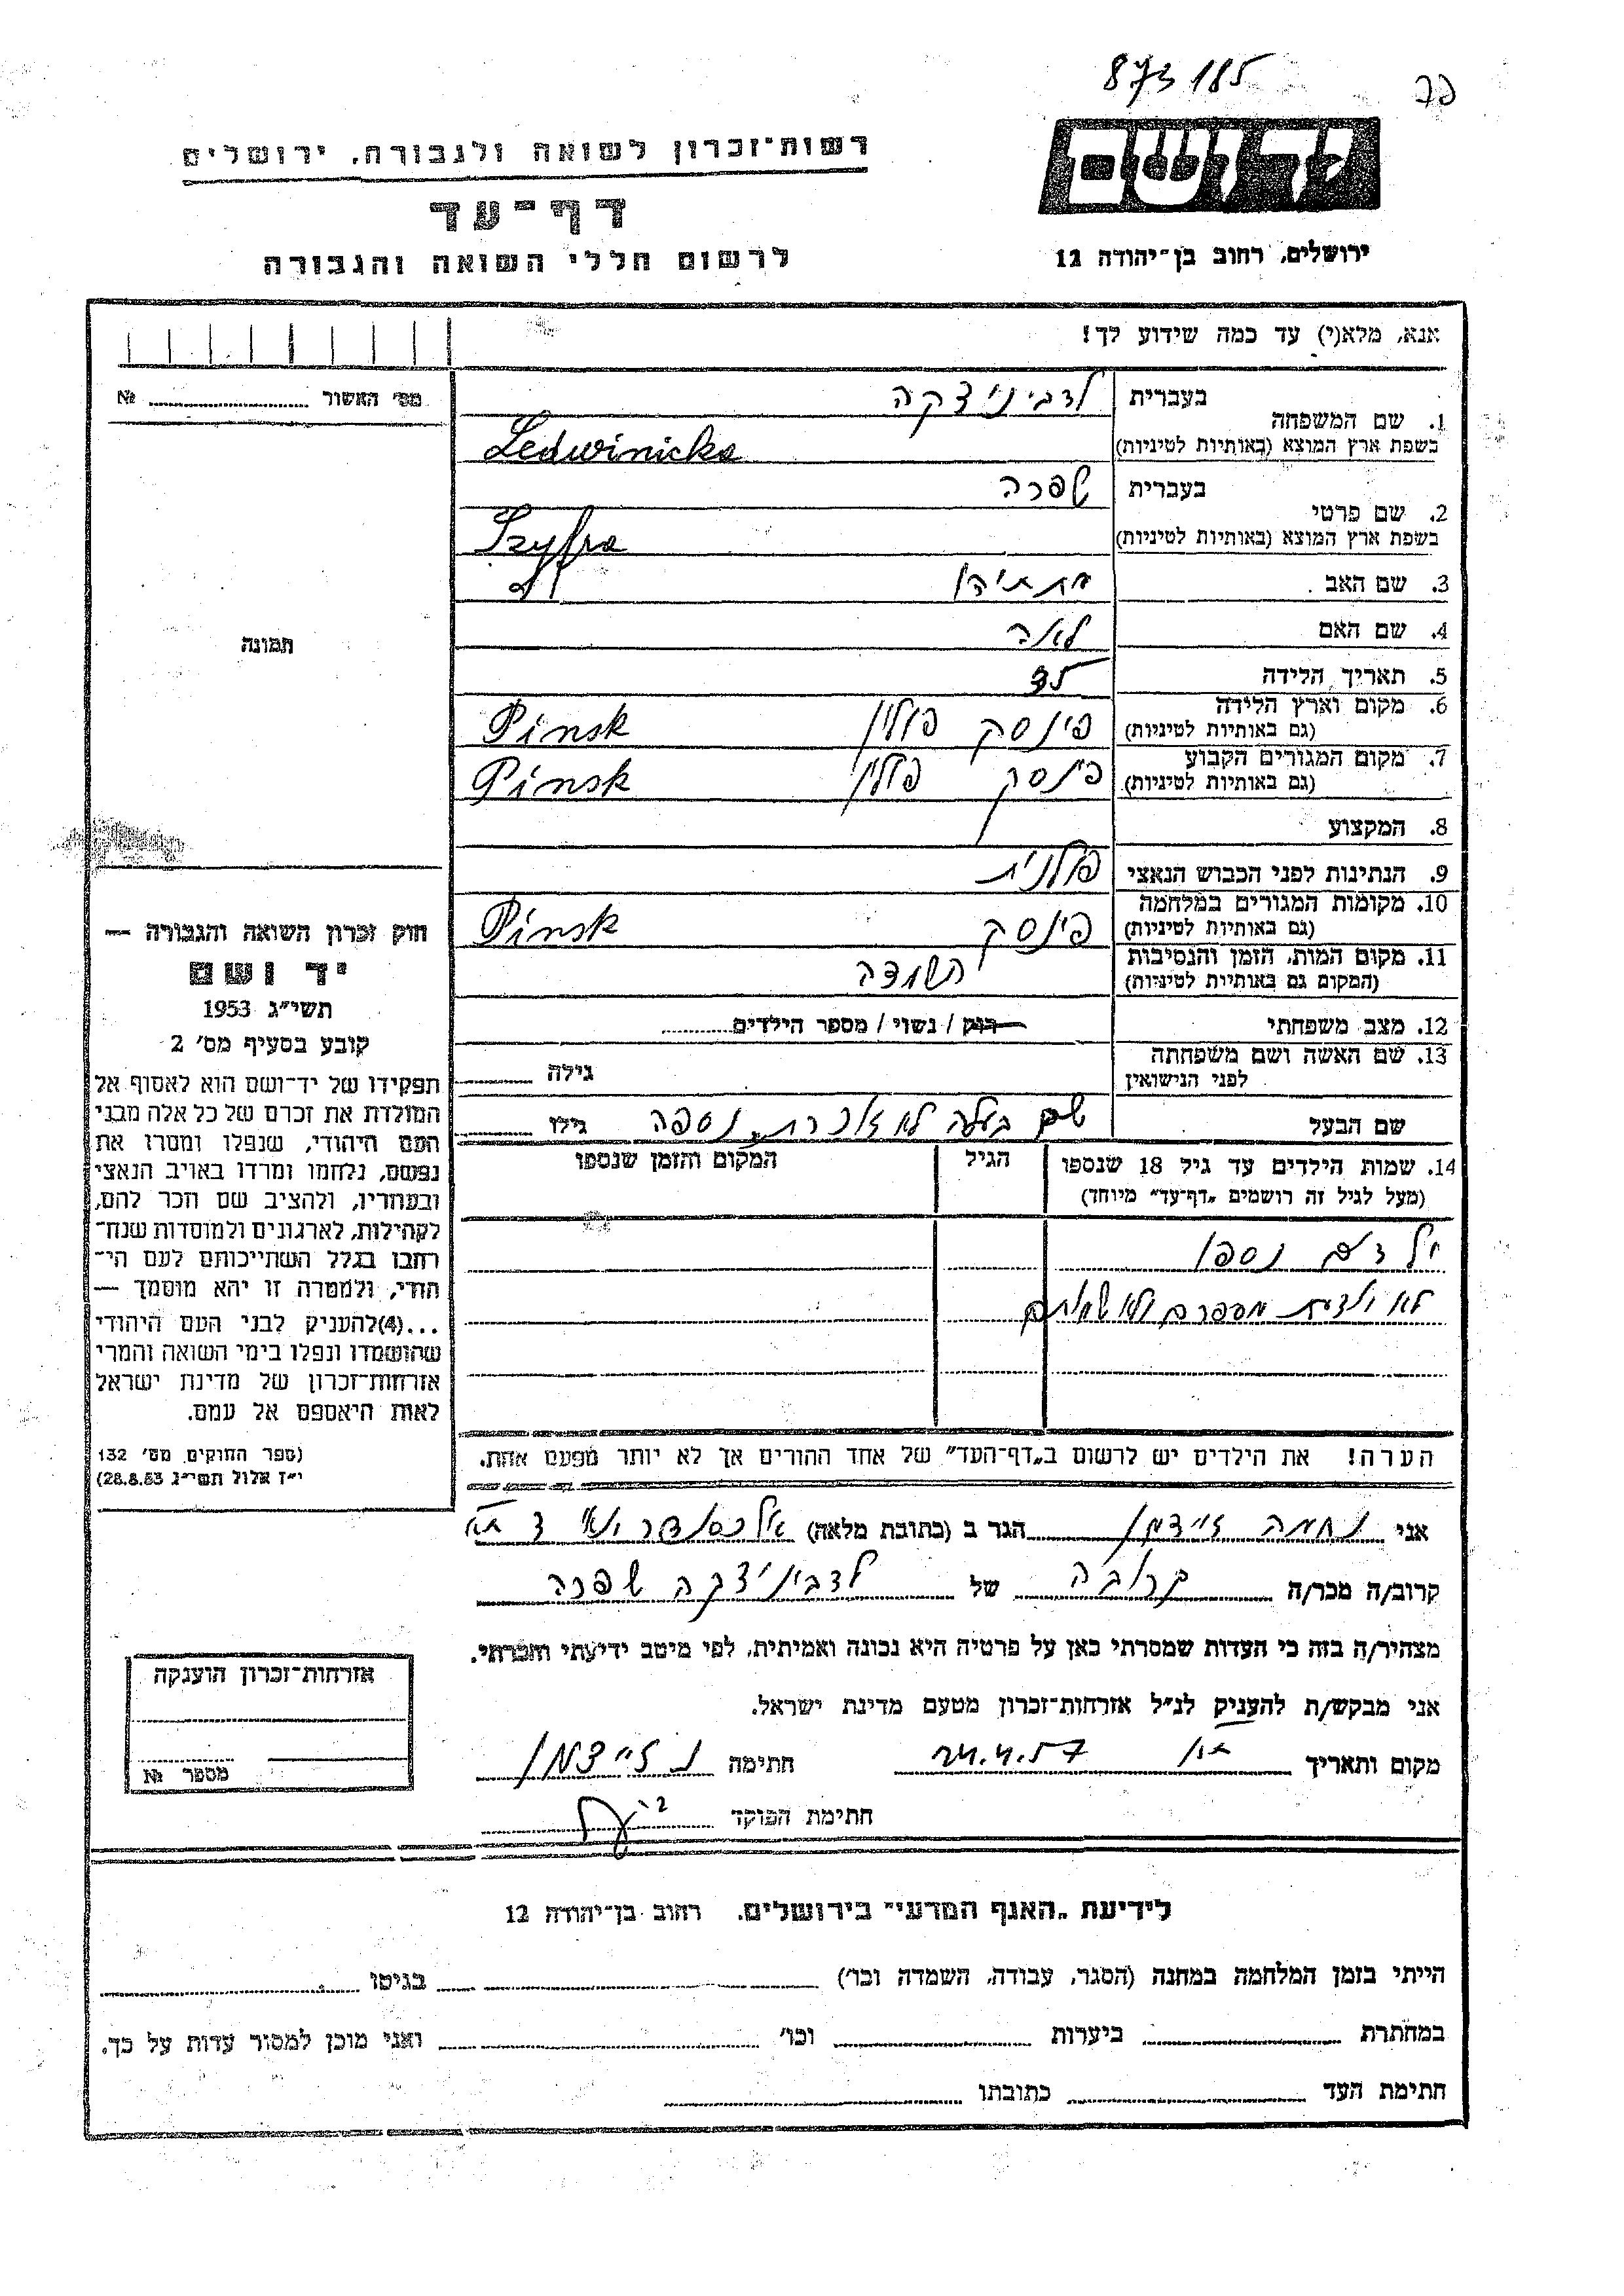 873185
פד
ידושם
ירושלים, רחוב בן־יהודה 12
רשות־זכרון לשואה ולגבורה, ירושלים
דף־עד
לרשום חללי השואה והגבורה
אנא, מלא(י) עד כמה שידוע לך!
מס׳ האשור № 
1. שם המשפחה
בעברית לדביניצקה
בשפת ארץ המוצא (באותיות לטיניות) Ledwinicka
2. שם פרטי
בעברית שפרה
בשפת ארץ המוצא (באותיות לטיניות) Szyfra
3. שם האב מתתיהו
4. שם האם לאה
5. תאריך הלידה
6. מקום וארץ הלידה
(גם באותיות לטיניות) פינסק פולין Pinsk
7. מקום המגורים הקבוע
(גם באותיות לטיניות) פינסק פולין Pinsk
8. המקצוע
9. הנתינות לפני הכבוש הנאצי פולנית
10. מקומות המגורים במלחמה
(גם באותיות לטיניות) פינסק Pinsk
11. מקום המות, הזמן והנסיבות
(המקום גם באותיות לטיניות) השמדה
12. מצב משפחתי רווק / נשוי / מספר הילדים
13. שם האשה ושם משפחתה
לפני הנישואין גילה
שם הבעל שם בעלה לא זוכרת. נספה גילו
14. שמות הילדים עד גיל 18 שנספו
(מעל לגיל זה רושמים „דף־עד״ מיוחד)
הגיל
המקום והזמן שנספו
ילדים נספו
לא יודעת מספרם ולא שמותם
הערה! את הילדים יש לרשום ב„דף־העד״ של אחד ההורים אך לא יותר מפעם אחת.
תמונה
חוק זכרון השואה והגבורה —
יד ושם
תשי״ג 1953
קובע בסעיף מס׳ 2
תפקידו של יד־ושם הוא לאסוף אל
המולדת את זכרם של כל אלה מבני
העם היהודי, שנפלו ומסרו את
נפשם, נלחמו ומרדו באויב הנאצי
ובעוזריו, ולהציב שם וזכר להם,
לקהילות, לארגונים ולמוסדות שנח־
רבו בגלל השתייכותם לעם הי־
הודי, ולמטרה זו יהא מוסמך —
...(4)להעניק לבני העם היהודי
שהושמדו ונפלו בימי השואה והמרי
אזרחות־זכרון של מדינת ישראל
לאות היאספם אל עמם.
(ספר החוקים מס׳ 132
י״ז אלול תשי״ג 28.8.53)
אני נחמה זיידמן הגר ב (כתובת מלאה)
קרוב/ה מכר/ה קרובה של לדביניצקה שפרה
מצהיר/ה בזה כי העדות שמסרתי כאן על פרטיה היא נכונה ואמיתית, לפי מיטב ידיעתי והכרתי.
אני מבקש/ת להעניק לנ״ל אזרחות־זכרון מטעם מדינת ישראל.
מקום ותאריך 24.4.57 חתימה נ זיידמן
חתימת הפוקד
אזרחות־זכרון הוענקה
מספר №
לידיעת „האגף המדעי״ בירושלים. רחוב בן־יהודה 12
הייתי בזמן המלחמה במחנה (הסגר, עבודה, השמדה וכו׳) בגיטו
במחתרת ביערות וכו׳ ואני מוכן למסור עדות על כך.
חתימת העד כתובתו